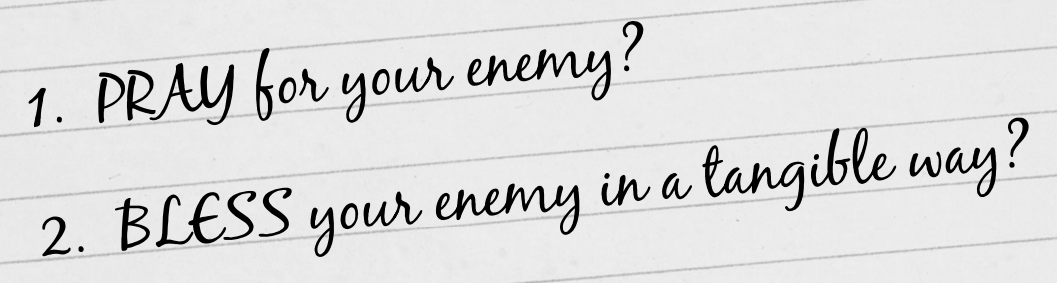 1. PRAY for your enemy?
2. BLESS your enemy in a tangible way?